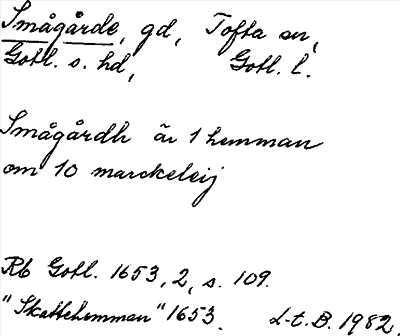 Smågårde, gd, Tofta sn,
Gotl. s. hd, Gotl. l.
Smågårdh är 1 hemman
om 10 marckeleij
Rb Gotl. 1653, 2, s. 109.
"Skattehemman" 1653. L-t. B. 1982.